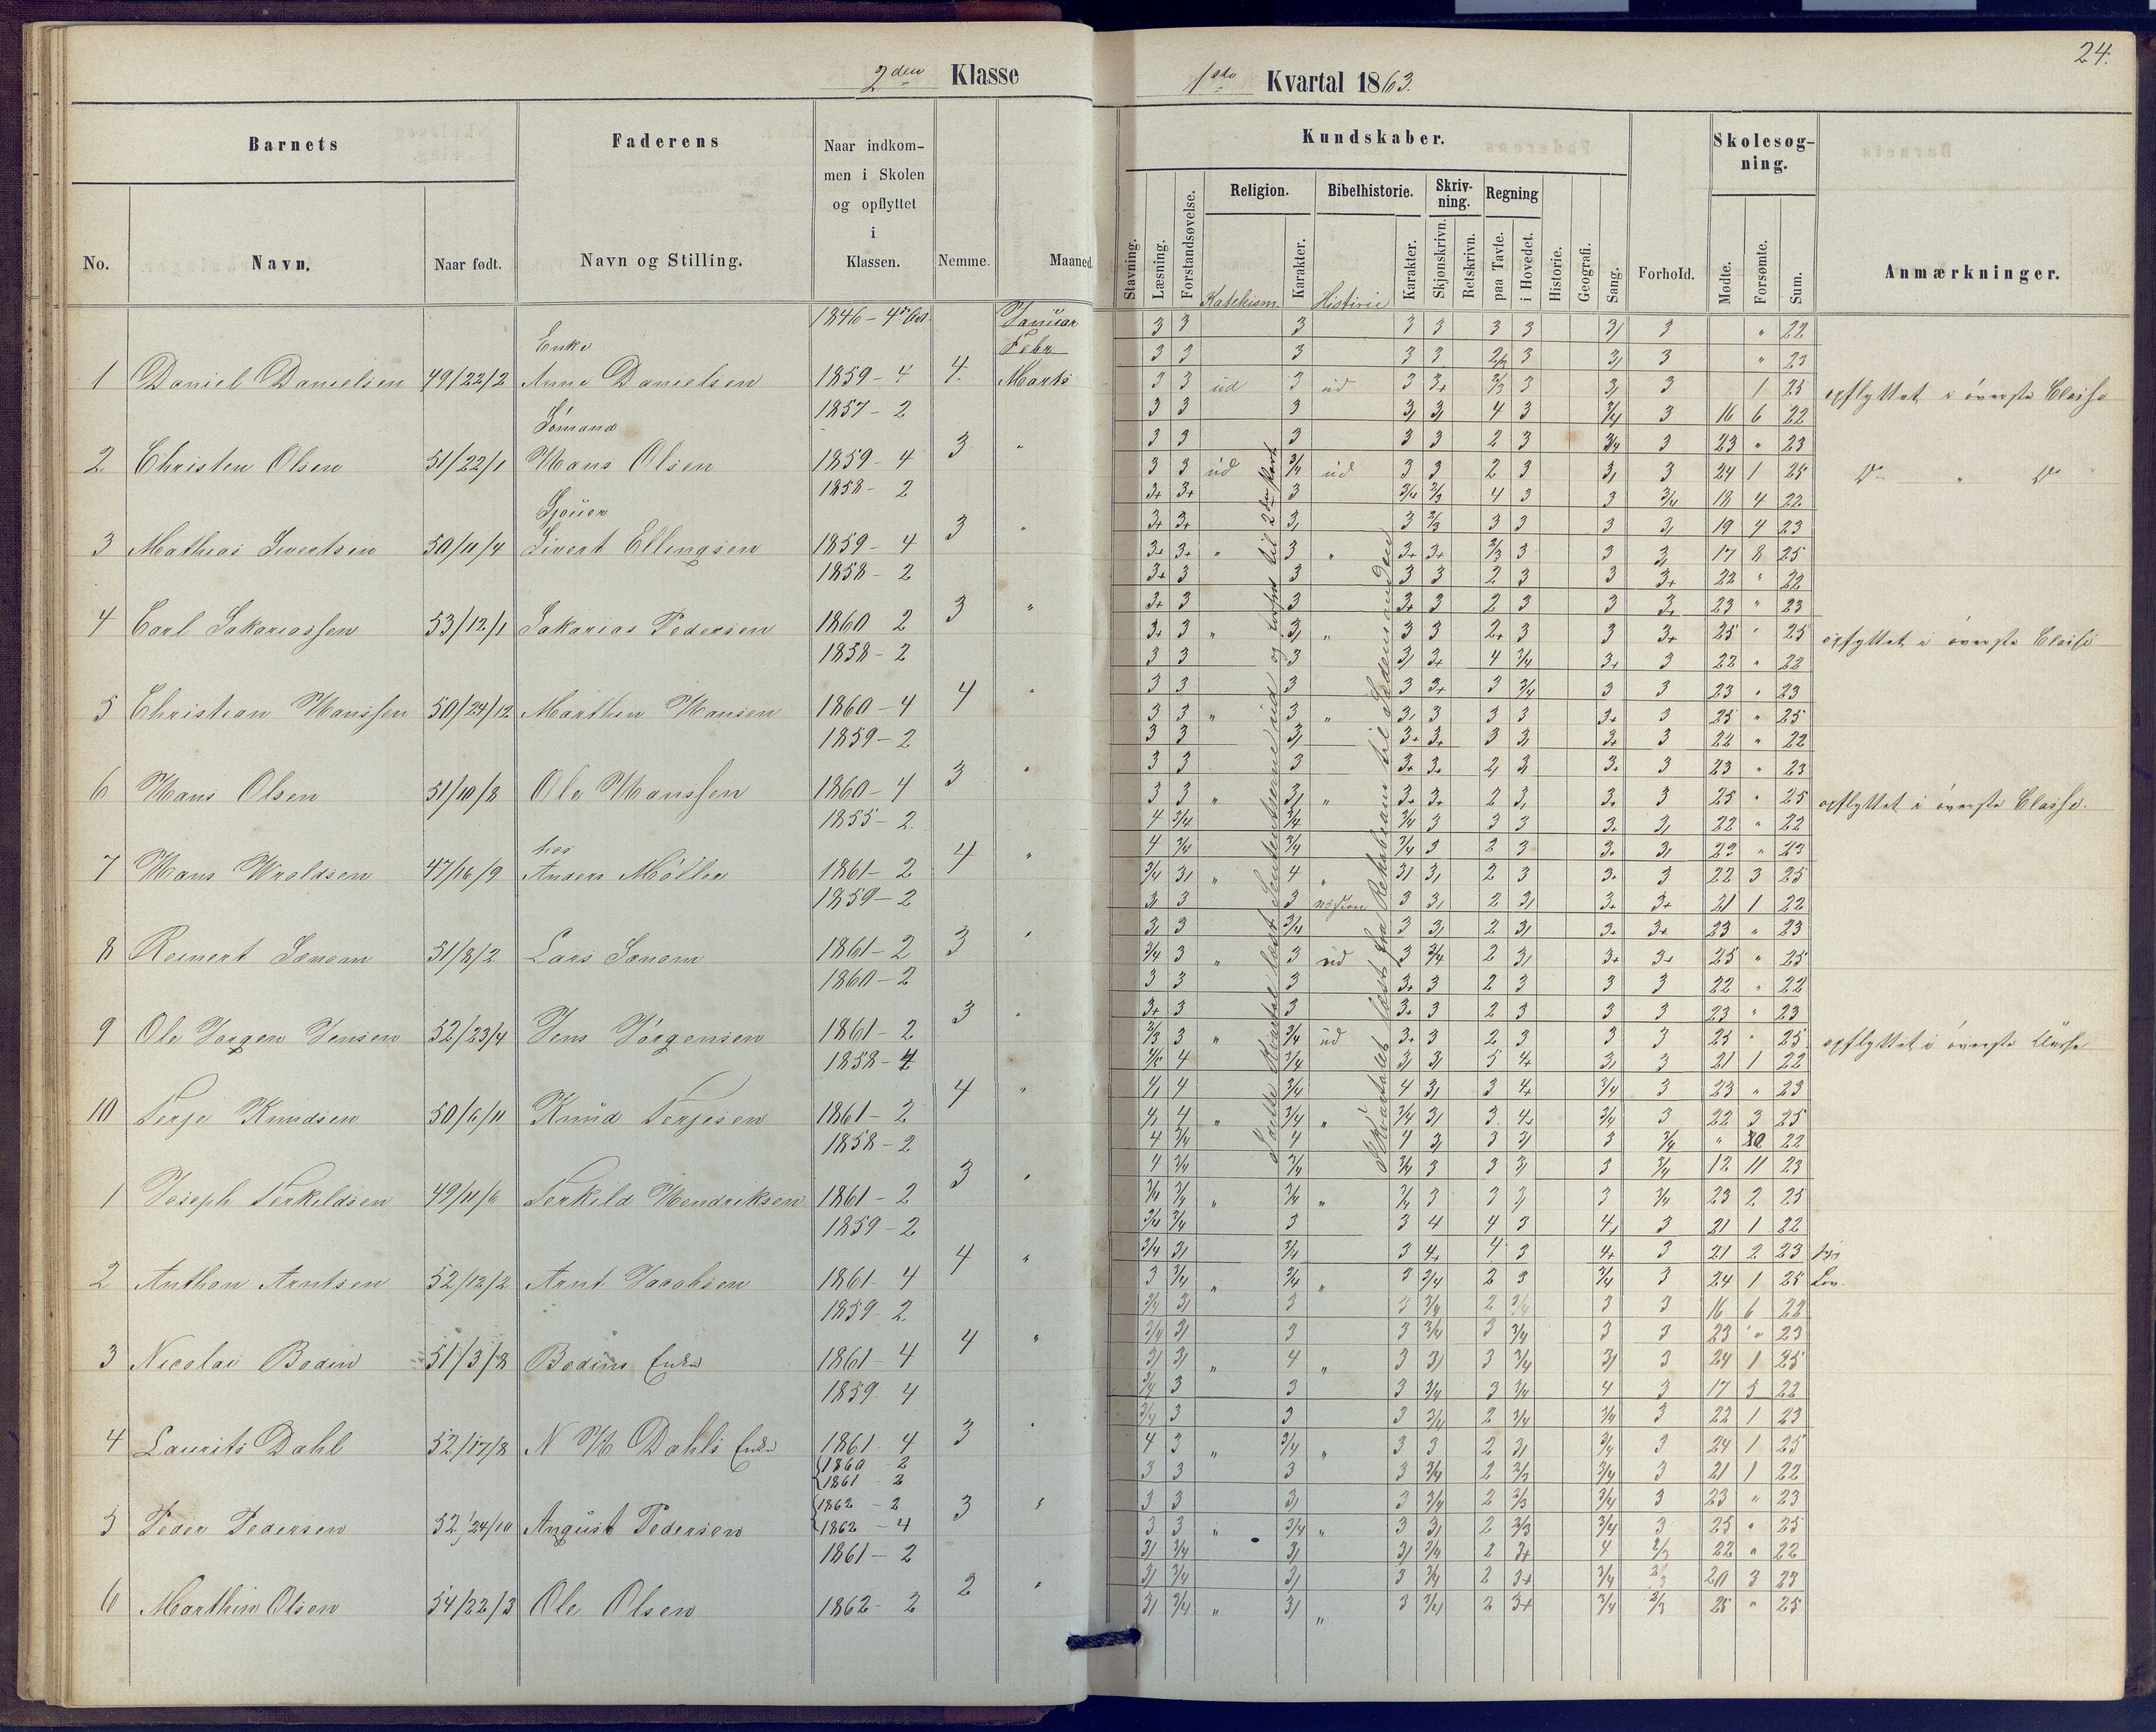 24.
2den Klasse
1ste Kvartal 1863.
Barnets
Faderens
Naar indkom-
men i Skolen
og opflyttet
i
Klassen.
No.
Navn.
Naar født.
Navn og Stilling.
Nemme.
Maaned.
Kundskaber.
Skolesøg-
ning.
Religion.
Bibelhistorie.
Skriv-
ning.
Regning
Stavning.
Læsning.
Forstandsøvelse.
Katekism.
Karakter.
Historie
Karakter.
Skjønskrivn.
Retskrivn.
paa Tavle.
i Hovedet.
Historie.
Geografi.
Sang.
Forhold.
Mødte.
Forsømte.
Sum.
Anmærkninger.
Januar 3 3 3 3 3 3 3 3/ 3 " 22
Enke Febr 3 3 3 3 3 3 3/ 3 " 23
1 Daniel Danielsen 49/22/2 Anne Danielsen 1859 - 4 4. Marts 3 3 ud 3 ud 3 3+ 2/3 3 3/ 3 1 25 opflyttet i øverste Classe
1857 - 2 3 3 3 3/ 3/ 4 3 3/4 3 16 6 22
Sømand 3 3 3 3 3 2 3 3/4 3 23 " 23
2 Christen Olsen 51/22/1 Hans Olsen 1859 - 4 3 " 3 3 ud 3/4 ud 3 3 2 3 3/ 3 24 1 25
1858 - 2 3+ 3+ 3 3/4 2/3 4 3 3 3/4 18 4 22
3+ 3+ 3/ 3 2/3 3 3 3 3/ 19 4 23
3 Mathias Sivertsen 50/11/4 Sivert Ellingsen 1859 - 4 3 " 3+ 3+ " 3 " 3+ 3+ 2/3 3 3 3/ 17 8 25
1858 - 2 3+ 3 3 3 3 2 3 3 3+ 22 " 22
3+ 3 3 3+ 3 2 3 3 3+ 23 " 23
4 Carl Sakariassen 53/12/1 Sakarias Pedersen 1860 2 3 " 3+ 3 " 3/ " 3 3 2+ 3 3 3+ 25 " 25 opflyttet i øverste Classe
1858 - 2 3 3 3 3/ 3+ 4 3/4 3+ 3 22 " 22
3 3 3 3 3+ 3 3/4 3 3 23 " 23
5 Christian Hanssen 50/24/12 Marthin Hansen 1860 - 4 4 " 3 3 " 3 " 3/ 3 3 3 3+ 3 25 " 25
1859 - 2 3 3 3/ 3+ 3+ 3 3/ 3+ 3 22 " 22
3 3 3 3+ 3+ 2/ 3/ 3+ 3 23 " 23
6 Hans Olsen 51/10/8 Ole Hanssen 1860 - 4 3 " 3 3 " 3/ " 3+ 3+ 2 3/ 3+ 3 25 " 25 opflyttet i øverste Classe.
1855 - 2. 4 3/4 3/4 3/4 3 3 3 3+ 3/ 22 " 22
hos 4 3/4 3/4 3/4 3 2 3 3+ 3/ 23 " 23
7 Hans Wroldsen 47/16/9 Anders Möller 1861 - 2 4 " 3/4 3/ " 4 " 3/ 3/ 2 3 3+ 3 22 3 25
1859 - 2 3/ 3 3 næsten 3 3/ 2 3/ 3+ 3+ 21 1 22
3/ 3 3/4 3 3/ 2 3/ 3+ 3+ 23 " 23
8 Reinert Sønem 51/8/2 Lars Sønem 1861 - 2 3 " 3/4 3 " 3 ud 3 3/4 2 3/ 3+ 3+ 25 " 25
1860 - 2 3 3 3 3+ 3 2 3 3 3 22 " 22
3+ 3 3 3+ 3 2 3 3 3 23 " 23
9 Ole Jørgen Jensen 52/23/4 Jens Jörgensen 1861 - 2 3 " 2/3 3 " 3/4 ud 3+ 3 2 3 3 3 25 " 25 opflyttet i øverste Classe
1858 - 4 4 3/4 3/ 3/ 5 4+ 3/ 3 21 1 22
4/ 4 3/4 4 3/ 3 4+ 3/4 3 23 " 23
10 Terje Knudsen 50/6/11 Knud Terjesen 1861 - 2 4 " 4/ 4 " 3/4 " 3/4 3/ 3 4+ 3/4 3 22 3 25
1858 - 2 4 3/4 4 4 3/ 3 3/ 3 3/4 " 22
4 3/4 3/4 3/4 3 3 3/ 3 3/4 12 11 23
1 Joseph Terkildsen 49/11/6 Terkild Hendriksen 1861 - 2 3 " 3/4 3/4 " 3/4 " 3/4 3 3 3/ 3 3/4 23 2 25
1859 - 2 3/4 3/4 3 3 4 4 3 4+ 3 21 1 22
3/4 3/ 3/4 3 4+ 4 3 4+ 3 21 2 23
2 Anthon Arntsen 52/12/2 Arnt Jacobsen 1861 - 4 4 " 3 3/4 " 3/4 " 3 3/4 2 3 3/4 3 24 1 25
1859 - 2 3/4 3/ 3 3 3/4 2 3/4 3 3 16 6 22
3/4 3/ 3 3 3/4 3 3/4 3 3 23 " 23
3 Nicolai Bodin 51/3/8 Bodins Enke 1861 - 4 4 " 3/ 3/ " 4 " 3 3/ 3 3/4 3/ 3 24 1 25
1859 4 3/4 3 3 3 3/4 3 3/4 4 3 17 5 22
3/4 3 3 3 3/4 2 3/4 3/4 3 22 1 23
4 Laurits Dahl 52/17/8 N H Dahls Enke 1861 4 3 " 4 3 " 3/4 " 3 3 2 3/ 3/4 3 24 1 25
1860 - 2
1861 2 3 3 3 3 3/4 2 2/3 3/4 3 21 1 22
1862 - 2 3 3 3/ 3 3/4 2 2/3 3/4 3 23 " 23
5 Peder Pedersen 52/24/10 August Pedersen 1862 - 4 3 " 3 3 " 3/4 " 3 3/ 2 2/3 3/4 3 25 " 25
1861 - 2 3/ 3/4 3/ 3/ 3/4 2 3+ 4 2/3 22 " 22
3/ 3/4 3/ 3 3/4 2 3+ 3/4 20 3 23
6 Marthin Olsen 54/22/3 Ole Olsen 1862 - 2 2 " 3/ 3/4 " 3/ " 3 3/4 2 3+ 3/4 2/3 25 " 25